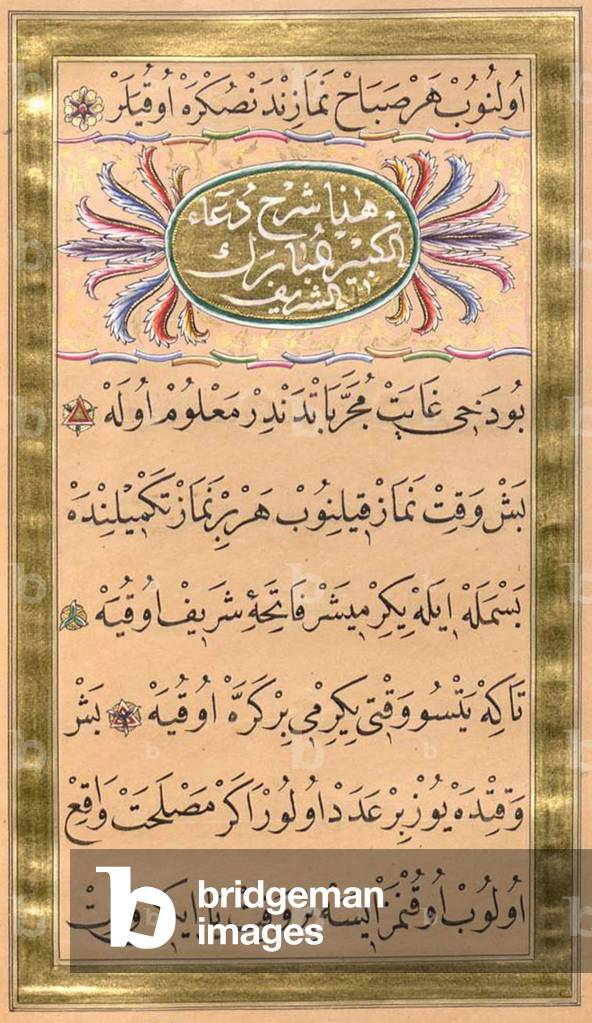 اُولُنُوبْ هَرْ صَبَاحْ نَمَازِنْدَنْ صُكْرَهْ اُوقُيَلَرْ
هٰذَا شَرْحِ دُعَاء
الكبير مبارك
الشريف
بُودَخِى غَايَتْ مُجَرَّبَاتْدَنْدِرْ مَعْلُومْ اُولَهْ
بَشْ وَقِتْ نَمَازْ قِيلِنُوبْ هَرْ بِرْ نَمَازْ تَكْمِيلِنْدَهْ
بَسْمَلَهْ اِيلَهْ يِكِرْمِيشَرْ فَاتِحَهِٔ شَرِيفْ اُوقُيَهْ
تَاكِهْ يَتْسُو وَقْتِى يِكِرْمِى بِرْ كَرَّهْ اُوقُيَهْ بَشْ
وَقِتْدَهْ يُوزْ بِرْ عَدَدْ اُولُورْ اَكَرْ مَصْلَحَتْ وَاقِعْ
اُولُوبْ اُوقُنْمَزْ اِيسَهْ بِرْ وَقِتْ
b bridgeman
images